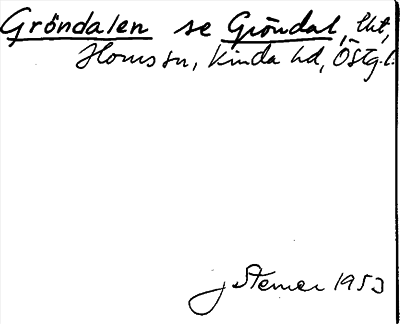 Gröndalen se Gröndal, lht,
Horns sn, Kinda hd, Östg.l.
J Sterner 1953